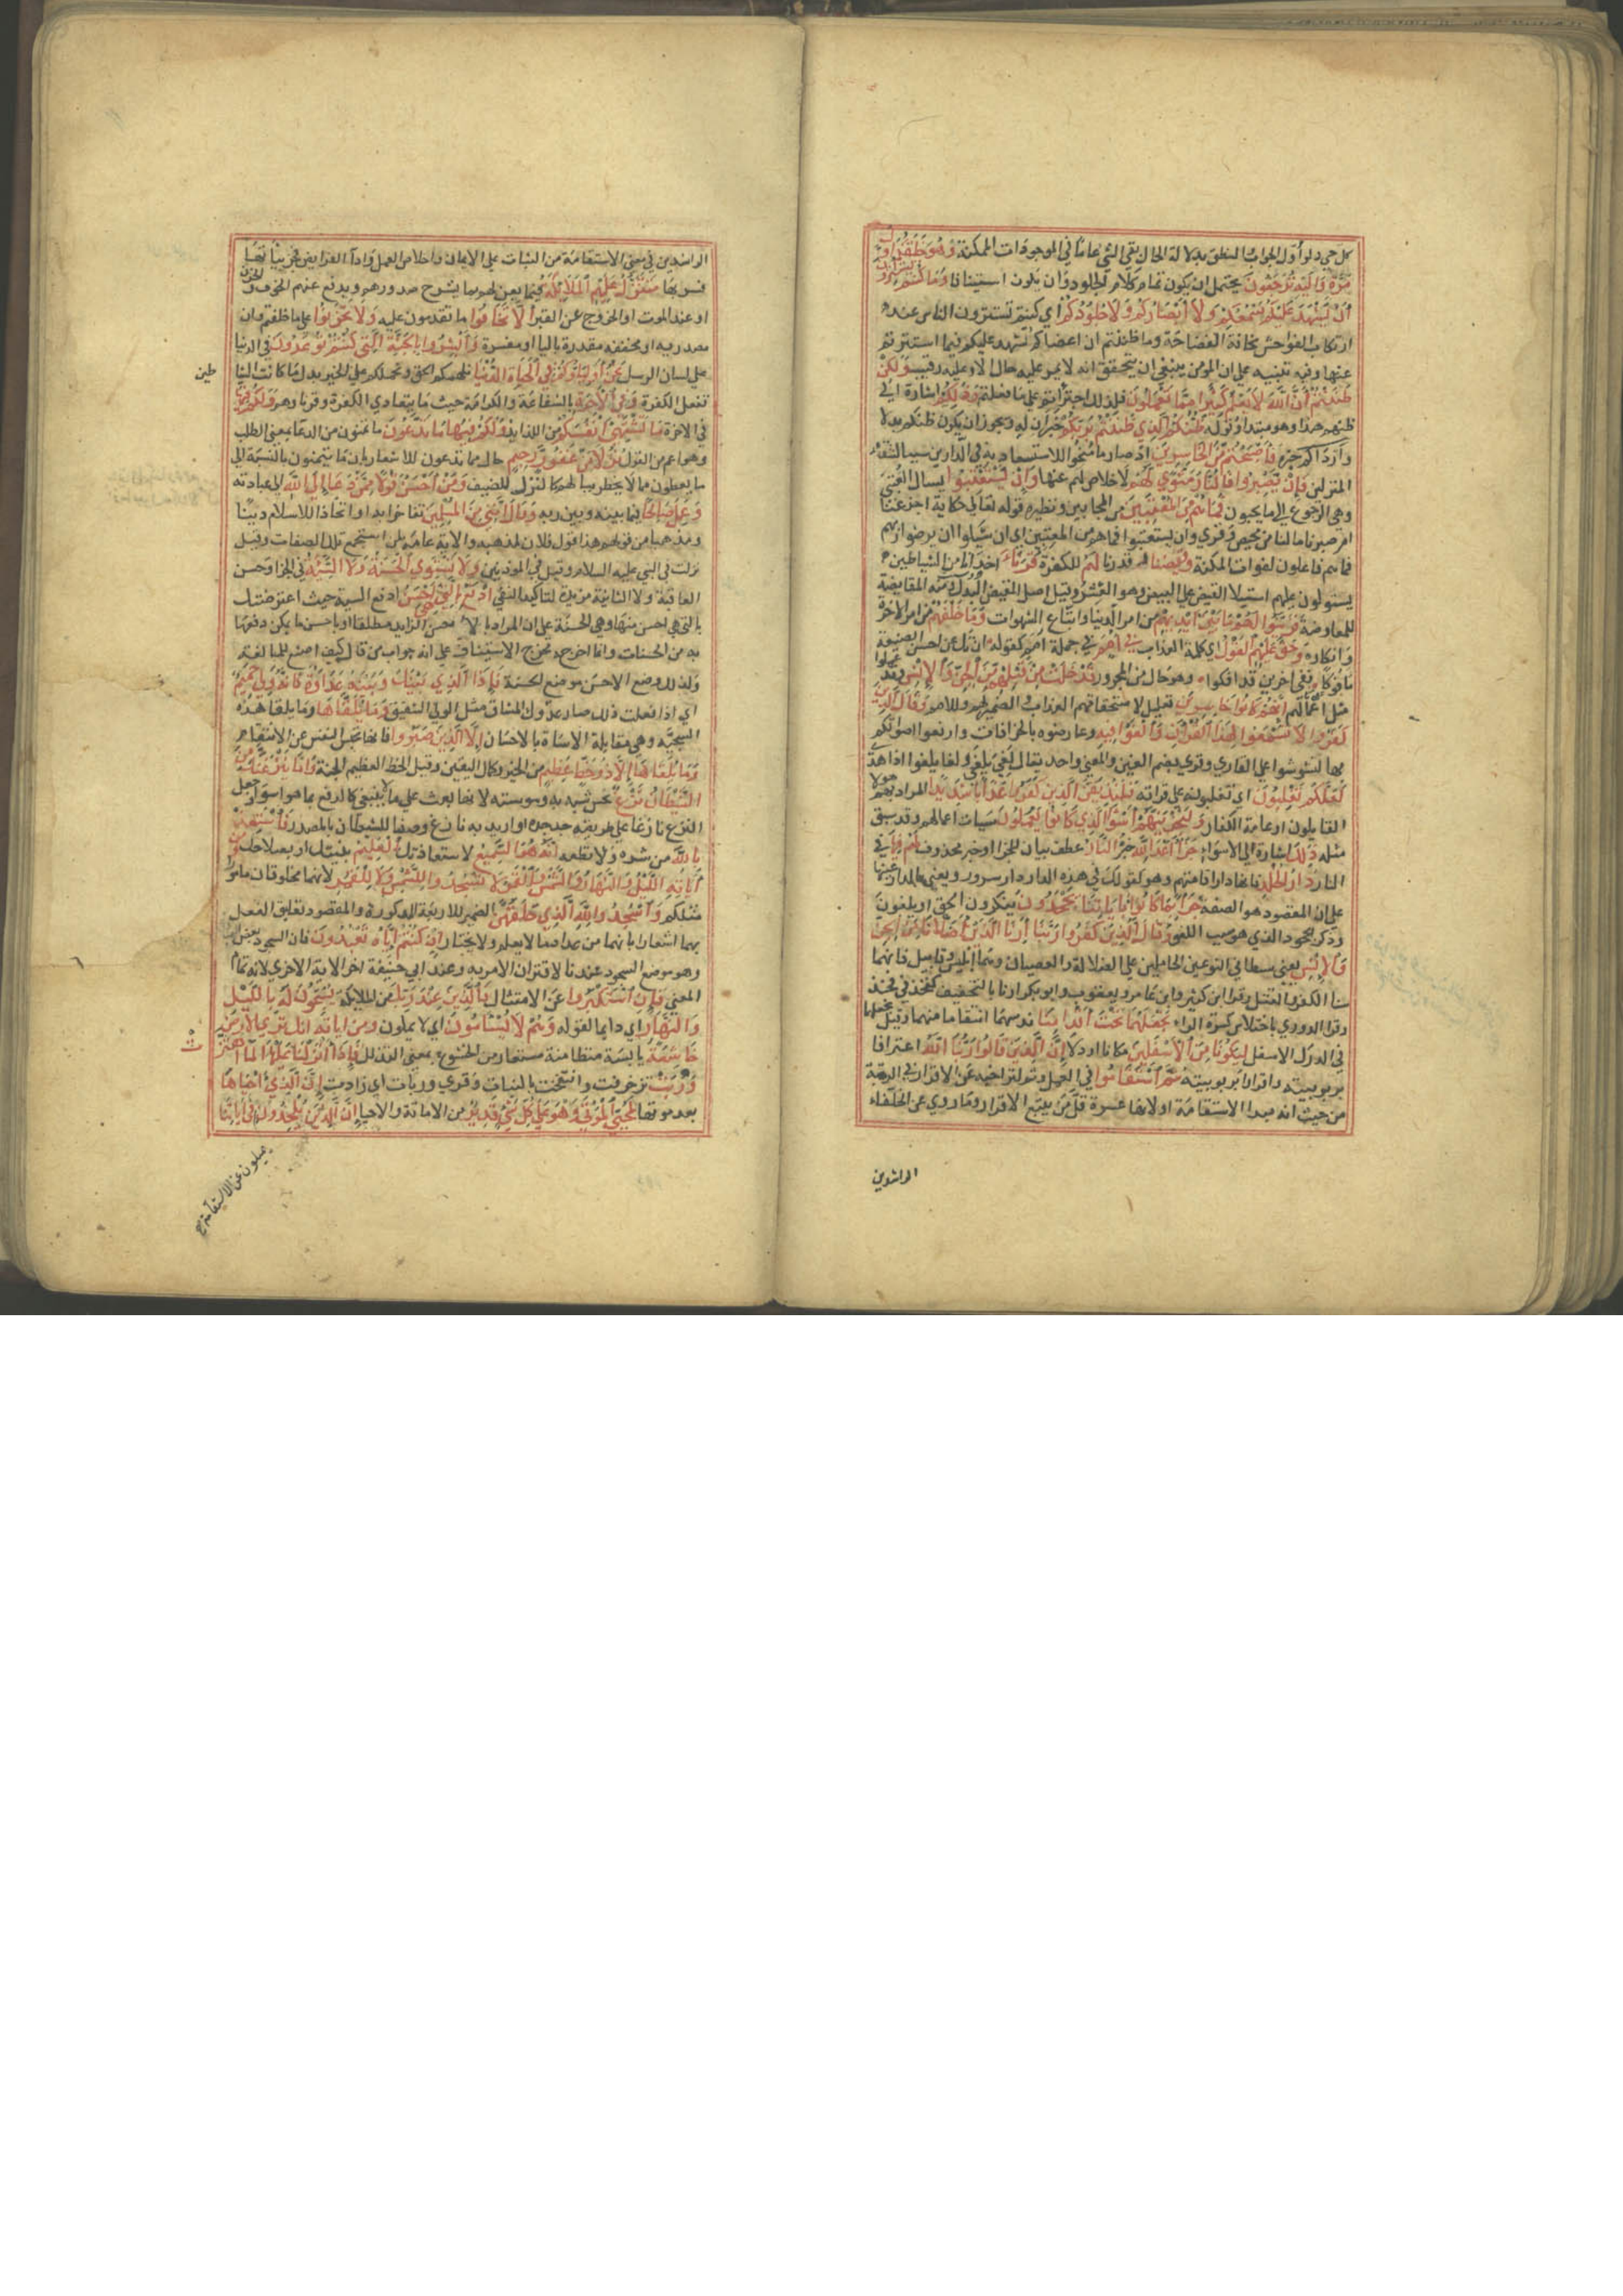 كل حي ولو اول الجواب النطق بدلالة الحال بقي الشي عاما في الموجودات الممكنة وهو خلقكم اول
مرة واليه ترجعون يحتمل ان يكون تمام كلام الجلود وان يكون استينافا وما كنتم تستترون
ان يشهد عليكم سمعكم ولا ابصاركم ولا جلودكم اي كنتم تستترون الناس عند
ارتكاب الفواحش مخافة الفضاحة وما ظننتم ان اعضاكم تشهد عليكم فما استترتم
عنها وفيه تنبيه على ان المومن ينبغي ان يتحقق انه لا يمر عليه حال الا وعليه رقيب ولكن
ظننتم ان الله لا يعلم كثيرا مما تعملون فلذلك اجترأتم على ما فعلتم وذلكم اشارة الى
ظنهم هذا وهو مبتدا وقوله ظنكم الذي ظننتم بربكم خبران له ويجوز ان يكون ظنكم بدلا
وارداكم خبره فاصبحتم من الخاسرين اذ صار ما منحوا للاستسعاد به في الدارين سببا لشقاء
المنزلين فان يصبروا فالنار مثوى لهم لا خلاص لهم عنها وان يستعتبوا يسالوا العتبى
وهي الرجوع الى ما يحبون فما هم من المعتبين من المجابين ونظيره قوله تعالى حكاية اجزعنا
ام صبرنا ما لنا من محيص وقري وان يستعتبوا فما هم من المعتبين اي ان يسالوا ان يرضوا ربهم
فما هم فاعلون لفوات المكنة وقيضنا وقدرنا لهم للكفرة قرناء اخدانا من الشياطين
يستولون عليهم استيلا القيض على البيض وهو القشر وقيل اصل القيض البدل ومنه المقايضة
للمعاوضة فزينوا لهم ما بين ايديهم من امر الدنيا واتباع الشهوات وما خلفهم من امر الاخرة
وانكاره وحق عليهم القول اي كلمة العذاب في امم في جملة امم كقوله ان تك عن احسن الصنيعة
مافوكا ففي اخرين قد افكوا وهو حال من المجرور قد خلت من قبلهم من الجن والانس وقد عملوا
مثل اعمالهم انهم كانوا خاسرين تعليل لاستحقاقهم العذاب والضمير لهم وللامم وقال الذين
كفروا لا تسمعوا لهذا القران والغوا فيه وعارضوه بالخرافات وارفعوا اصواتكم
بها لتشوشوا على القاري وقري بضم الغين والمعنى واحد يقال لغي يلغى ولغا يلغوا اذا هذى
لعلكم تغلبون اي تغلبونه على قراته فلنذيقن الذين كفروا عذابا شديدا المراد بهم هولا
القايلون او عامة الكفار ولنجزينهم اسوا الذي كانوا يعملون سيات اعمالهم وقد سبق
مثله ذلك اشارة الى الاسوا جزآ اعدا الله خبره النار عطف بيان للجزا او خبر محذوف لهم فيها في
النار دار الخلد فانها دار اقامتهم وهو كقولك في هذه الدار دار سرور ويعنى بالدار عينها
على ان المقصود هو الصفة جزآ بما كانوا باياتنا يجحدون ينكرون الحق او يلغون
وذكر الجحود الذي هو سبب اللغو وقال الذين كفروا ربنا ارنا الذين اضلانا من الجن
والانس يعني شيطاني النوعين الحاملين على الضلالة والعصيان وقيل هما ابليس وقابيل فانهما
سنا الكفر والقتل وقرا ابن كثير وابن عامر ويعقوب وابو بكر ارنا بالتخفيف كفخذ في فخذ
وقرا الدوري باختلاس كسرة الراء نجعلهما تحت اقدامنا ندوسهما انتقاما منهما وقيل نجعلهما
في الدرك الاسفل ليكونا من الاسفلين مكانا او ذلا ان الذين قالوا ربنا الله اعترافا
بربوبيته واقرارا بربوبيته ثم استقاموا في العمل وثم لتراخيه عن الاقرار في الرتبة
من حيث انه مبدا الاستقامة او لانها عسرة قل من يتبع الاقرار وما روي عن الخلفاء
الراشدين
الراشدين في معنى الاستقامة من الثبات على الايمان واخلاص العمل وادآ الفرايض فجزيياتها
فسر بها تتنزل عليهم الملائكة فيما يعن لهم بما يشرح صدورهم ويدفع عنهم الخوف والحزن
او عند الموت او الخروج عن القبر الا تخافوا ما تقدمون عليه ولا تحزنوا على ما خلفتم وان
مصدرية او مخففة مقدرة بالبا او مفسرة وابشروا بالجنة التي كنتم توعدون في الدنيا
على لسان الرسل نحن اوليآوكم في الحياة الدنيا نلهمكم الحق ونحملكم على الخير بدل ما كانت الشيا
طين
تفعل الكفرة وفي الاخرة بالشفاعة والكرامة حيث ما يتعادى الكفرة وقرناوهم ولكم فيها
في الاخرة ما تشتهي انفسكم من اللذايذ ولكم فيها ما تدعون ما تتمنون من الدعا بمعنى الطلب
وهو اعم من الاول نزلا من غفور رحيم حال مما تدعون للاشعار بان ما يتمنون بالنسبة الى
ما يعطون مما لا يخطر ببالهم كالنزل للضيف ومن احسن قولا ممن دعا الى الله الى عبادته
وعمل صالحا فيما بينه وبين ربه وقال انني من المسلمين تفاخرا به او اتخاذا للاسلام دينا
ومذهبا من قولهم هذا قول فلان لمذهبه والاية عامة لمن استجمع تلك الصفات وقيل
نزلت في النبي عليه السلام وقيل في الموذنين ولا تستوي الحسنة ولا السيئة في الجزا وحسن
العاقبة ولا الثانية مزيدة لتاكيد النفي ادفع بالتي هي احسن ادفع السية حيث اعترضتك
بالتي هي احسن منها وهي الحسنة على ان المراد بالاحسن الزايد مطلقا او باحسن ما يمكن دفعها
به من الحسنات وانما اخرجه مخرج الاستيناف على انه جواب من قال كيف اصنع للمبالغة
ولذلك وضع الاحسن موضع الحسنة فاذا الذي بينك وبينه عداوة كانه ولي حميم
اي اذا فعلت ذلك صار عدوك المشاق مثل الولي الشفيق وما يلقاها وما يلقا هذه
السجية وهي مقابلة الاساة بالاحسان الا الذين صبروا فانها تحبس النفس عن الانتقام
وما يلقاها الا ذو حظ عظيم من الخير وكمال النفس وقيل الحظ العظيم الجنة واما ينزغنك من
الشيطان نزغ نخس شبه به وسوسته لانها بعث على ما لا ينبغي كالدفع بما هو اسوا وجعل
النزغ نازغا على طريقة جد جده او اريد به نازغ وصفا للشيطان بالمصدر فاستعذ
بالله من شره ولا تطعه انه هو السميع لاستعاذتك العليم بنيتك او بصلاحك ومن
اياته الليل والنهار والشمس والقمر لا تسجدوا للشمس ولا للقمر لانهما مخلوقان مامورا
مثلكم واسجدوا لله الذي خلقهن الضمير للاربعة المذكورة والمقصود تعليق الفعل
بهما اشعارا بانهما من عداد ما لا يعلم ولا يختار ان كنتم اياه تعبدون فان السجود اخص
وهو موضع السجود عندنا لاقتران الامر به وعند ابي حنيفة اخر الاية الاخرى لانه تمام
المعنى فان استكبروا عن الامتثال فالذين عند ربك من الملايكة يسبحون له بالليل
والنهار اي دايما لقوله وهم لا يسامون اي لا يملون ومن اياته انك ترى الارض
خاشعة يابسة متطامنة مستعار من الخشوع بمعنى التذلل فاذا انزلنا عليها الما اهتزت
وربت تزخرفت وانتفخت بالنبات وقري وربات اي زادت ان الذي احياها
بعد موتها لمحيي الموتى وهو على كل شي قدير من الاماتة والاحيا ان الذين يلحدون في اياتنا
يميلون عن الاستقامة